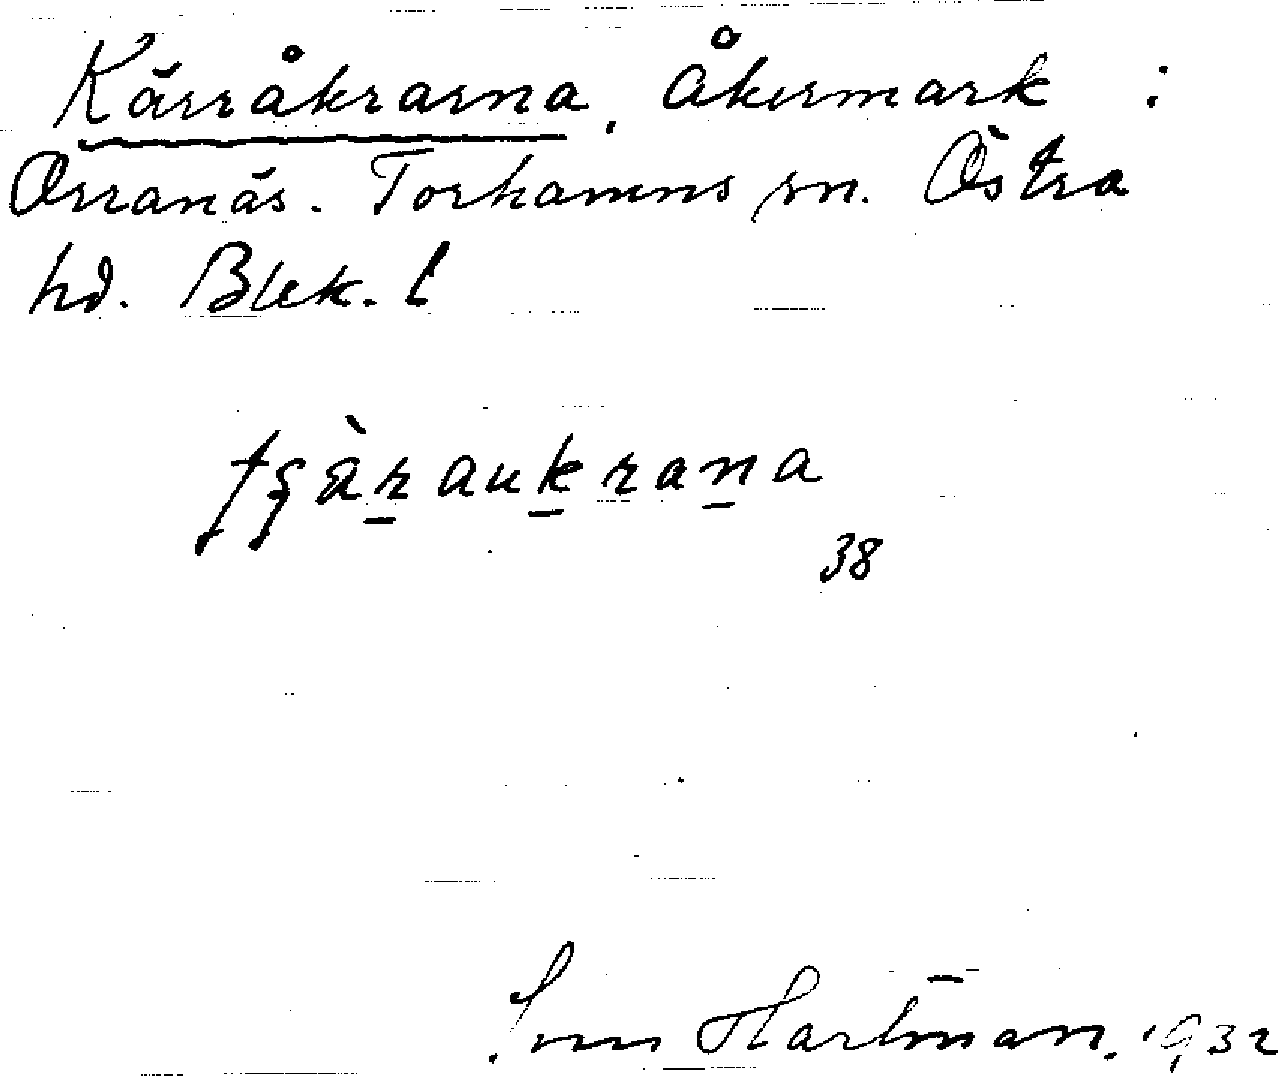 Kärråkrarna, Åkermark i
Orranäs. Torhamns sn. Östra
hd. Blek. l
tʃàraukrana
38
Hartman. 1932